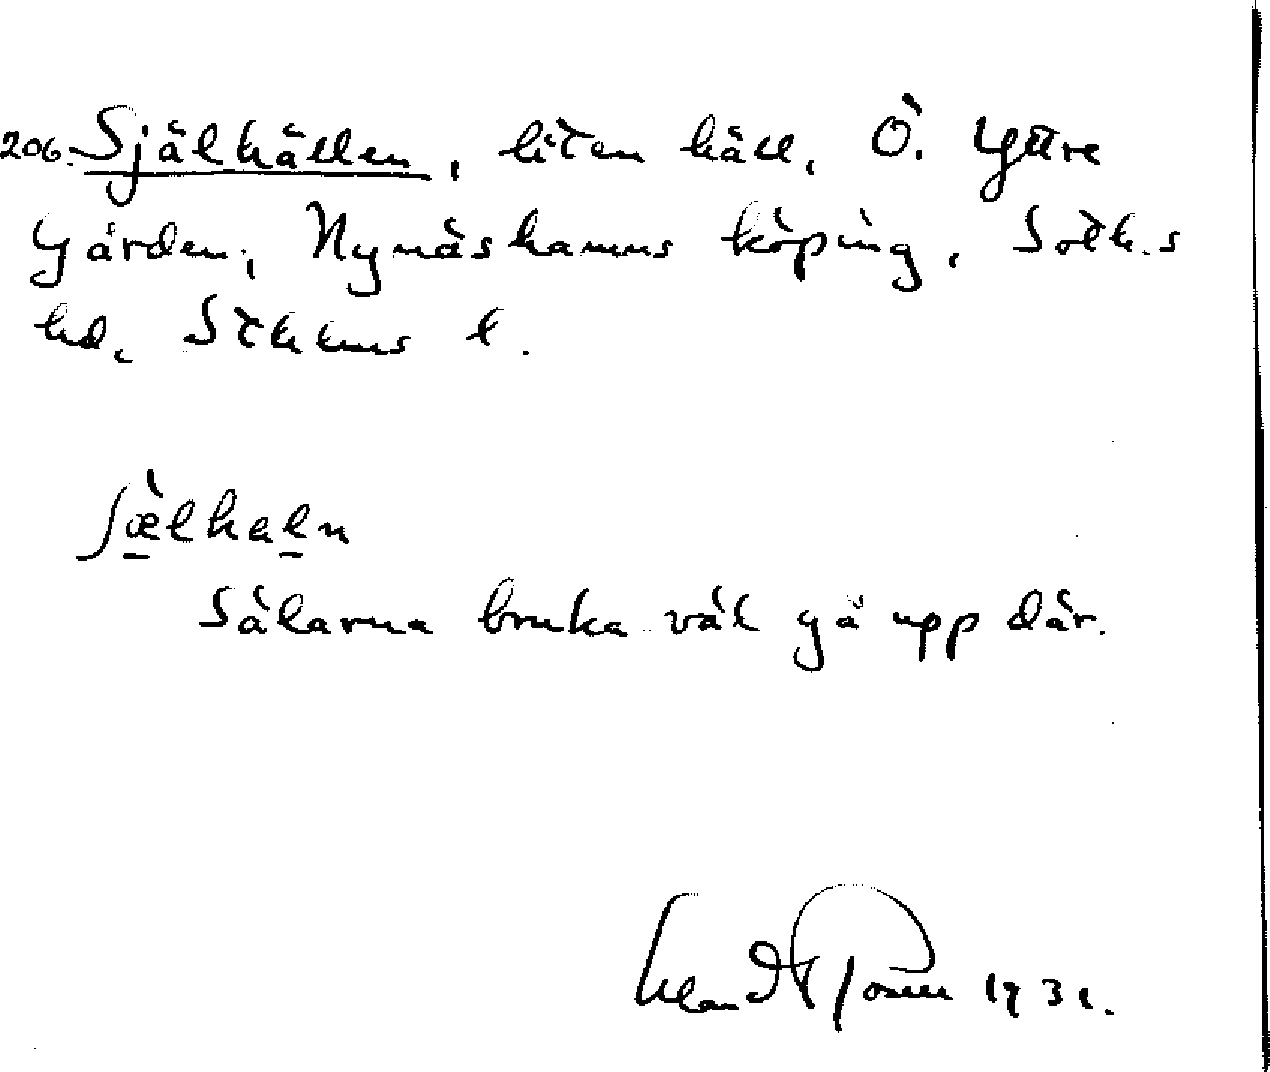 206. Själhällen, liten häll, Ö. Yttre
Gården, Nynäshamns köping, Soth.s
hd, Sthlms l.
ʃæ̀lhaln
Sälarna bruka väl gå upp där.
1931.